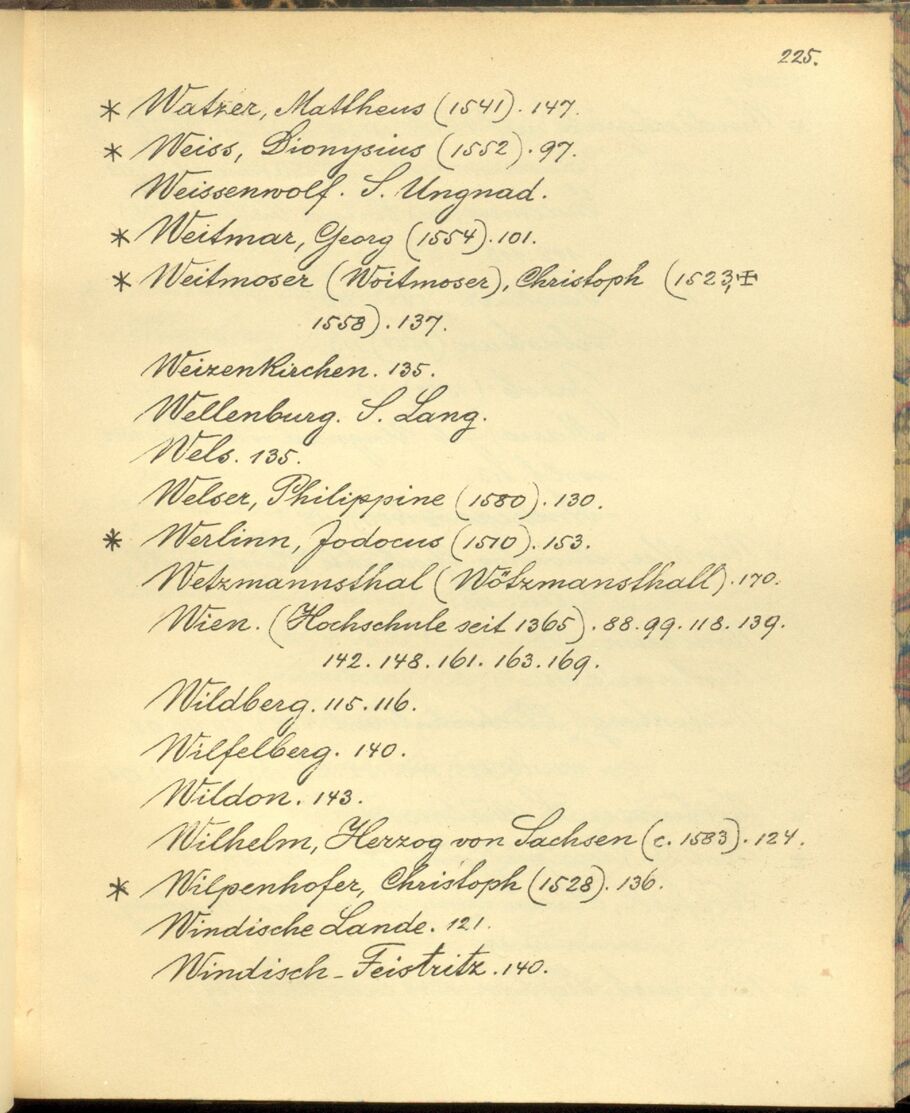 225.
* Watzer, Mattheus (1541). 147.
* Weiss, Dionysius (1552). 97.
Weissenwolf. S. Ungnad.
* Weitmar, Georg (1554). 101.
* Weitmoser (Woitmoser), Christoph (1523, ✠
1558). 137.
Weizenkirchen. 135.
Wellenburg. S. Lang.
Wels. 135.
Welser, Philippine (1580). 130.
* Werlinn, Jodocus (1510). 153.
Wetzmannsthal (Wötzmansthall). 170.
Wien. (Hochschule seit 1365). 88. 99. 118. 139.
142. 148. 161. 163. 169.
Wildberg. 115. 116.
Wilfelberg. 140.
Wildon. 143.
Wilhelm, Herzog von Sachsen (c. 1583). 124.
* Wilpenhofer, Christoph (1528). 136.
Windische Lande. 121.
Windisch-Feistritz. 140.